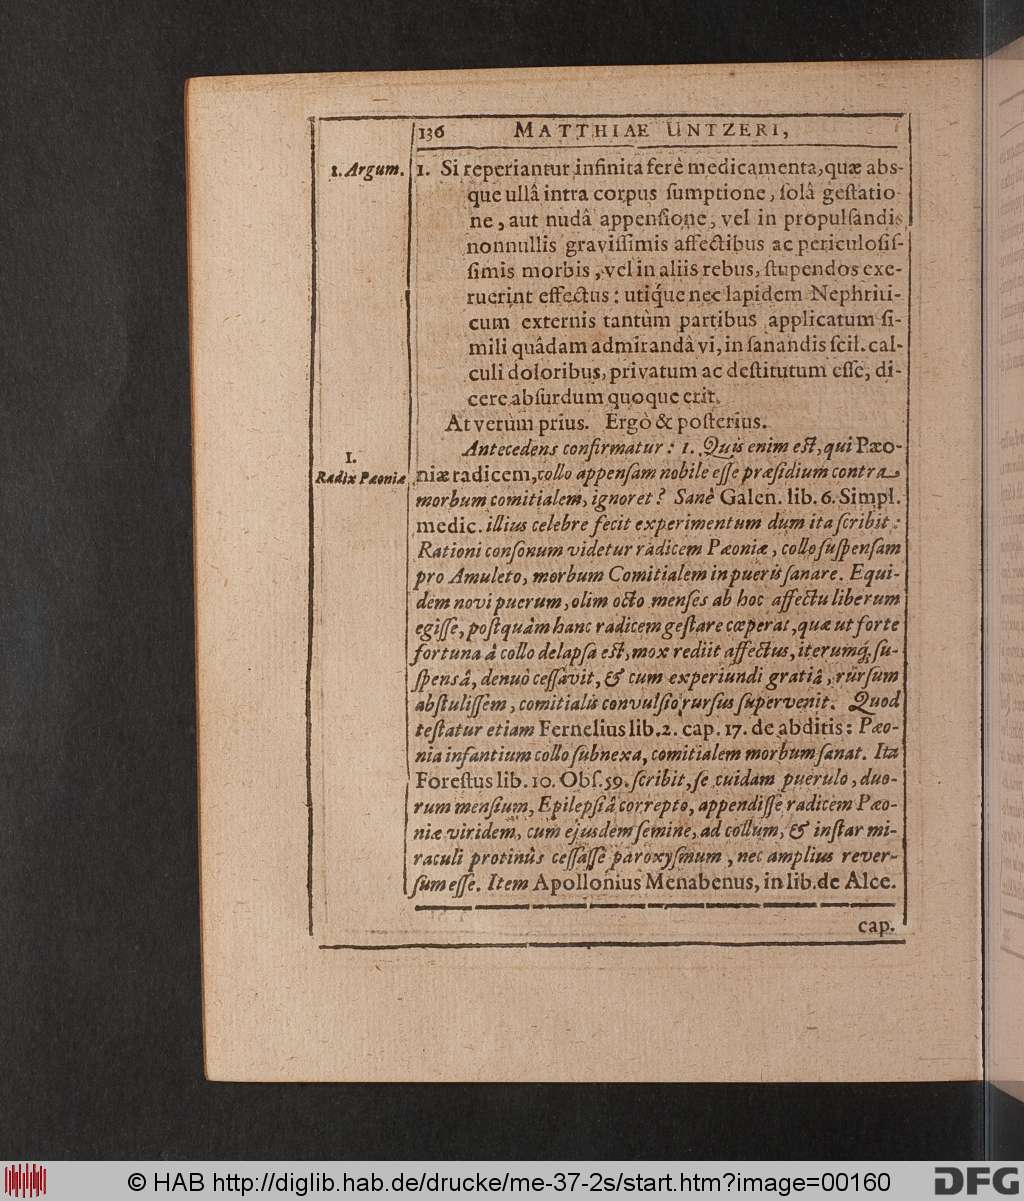 136 MATTHIAE UNTZERI,
1. Argum.
1. Si reperiantur infinita ferè medicamenta, quæ abs-
que ullâ intra corpus ſumptione, ſolâ geſtatio
ne, aut nudâ appenſione, vel in propulſandis
nonnullis graviſſimis affectibus ac periculoſiſ-
ſimis morbis, vel in aliis rebus, ſtupendos exe-
ruerint effectus: utiq́ue nec lapidem Nephriti-
cum externis tantùm partibus applicatum ſi-
mili quâdam admirandâ vi, in ſanandis ſcil. cal-
culi doloribus, privatum ac deſtitutum eſſe, di-
cere abſurdum quoque erit.
At verùm prius. Ergò & poſterius.
I.
Radix Pæoniæ
Antecedens confirmatur: 1. Quis enim eſt, qui Pæo-
niæ radicem, collo appenſam nobile eſſe præſidium contra
morbum comitialem, ignoret? Sanè Galen. lib. 6. Simpl.
medic. illius celebre fecit experimentum dum ita ſcribit:
Rationi conſonum videtur radicem Pæoniæ, collo ſuſpenſam
pro Amuleto, morbum Comitialem in pueris ſanare. Equi-
dem novi puerum, olim octo menſes ab hoc affectu liberum
egiſſe, poſtquàm hanc radicem geſtare cœperat, quæ ut forte
fortuna â collo delapſa eſt, mox rediit affectus, iterumq́; ſu-
ſpensâ, denuò ceſſavit, & cum experiundi gratiâ, rurſum
abſtuliſſem, comitialis convulſio rurſus ſupervenit. Quod
teſtatur etiam Fernelius lib. 2. cap. 17. de abditis: Pæo-
nia infantium collo ſubnexa, comitialem morbum ſanat. Ita
Foreſtus lib. 10. Obſ. 59. ſcribit, ſe cuidam puerulo, duo-
rum menſium, Epilepſiâ correpto, appendiſſe radicem Pæo-
niæ viridem, cum ejusdem ſemine, ad collum, & inſtar mi-
raculi protinùs ceſſaſſe paroxyſmum, nec amplius rever-
ſum eſſe. Item Apollonius Menabenus, in lib. de Alce.
cap.
© HAB http://diglib.hab.de/drucke/me-37-2s/start.htm?image=00160
DFG